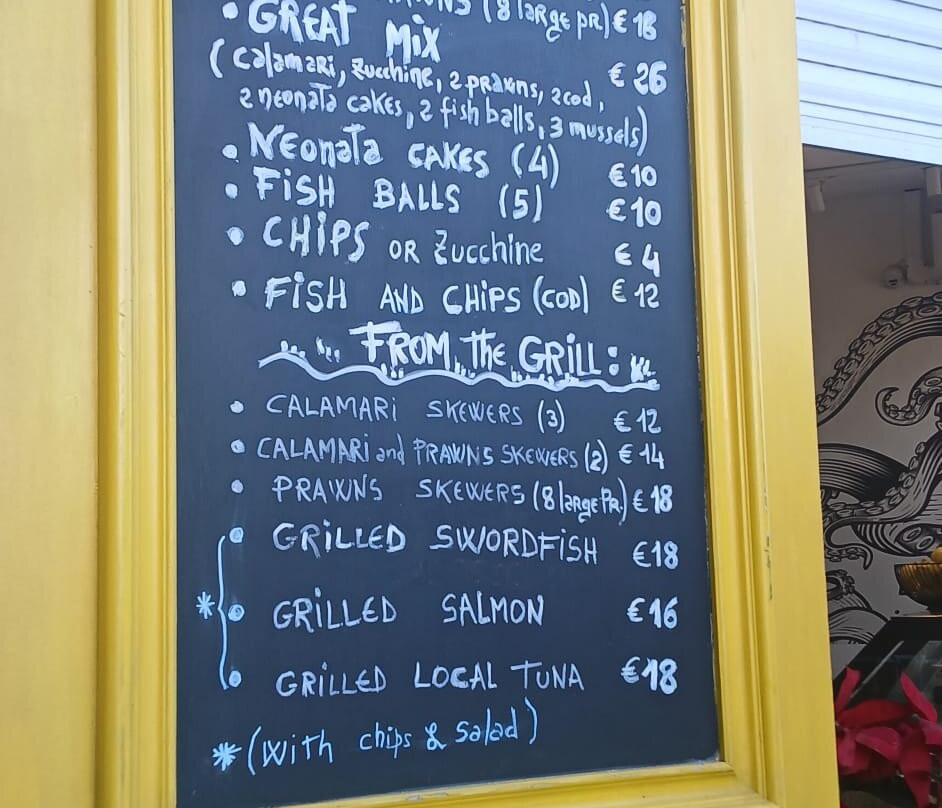 (8 large pr.) € 18
• GREAT MIX
(Calamari, Zucchine, 2 prawns, 2 cod, € 26
2 neonata cakes, 2 fish balls, 3 mussels)
• NEonata CAKES (4) €10
• FiSH BALLS (5) €10
• CHiPS OR Zucchine € 4
• FiSH AND CHiPS (COD) € 12
FROM the GRiLL:
• CALAMARi SKEWERS (3) € 12
• CALAMARi and PRAWNS SKEWERS (2) € 14
• PRAWNS SKEWERS (8 large PR.) € 18
• GRiLLED SWORDFiSH €18
* • GRiLLED SALMON €16
• GRiLLED LOCAL TUNA €18
* (With chips & Salad)